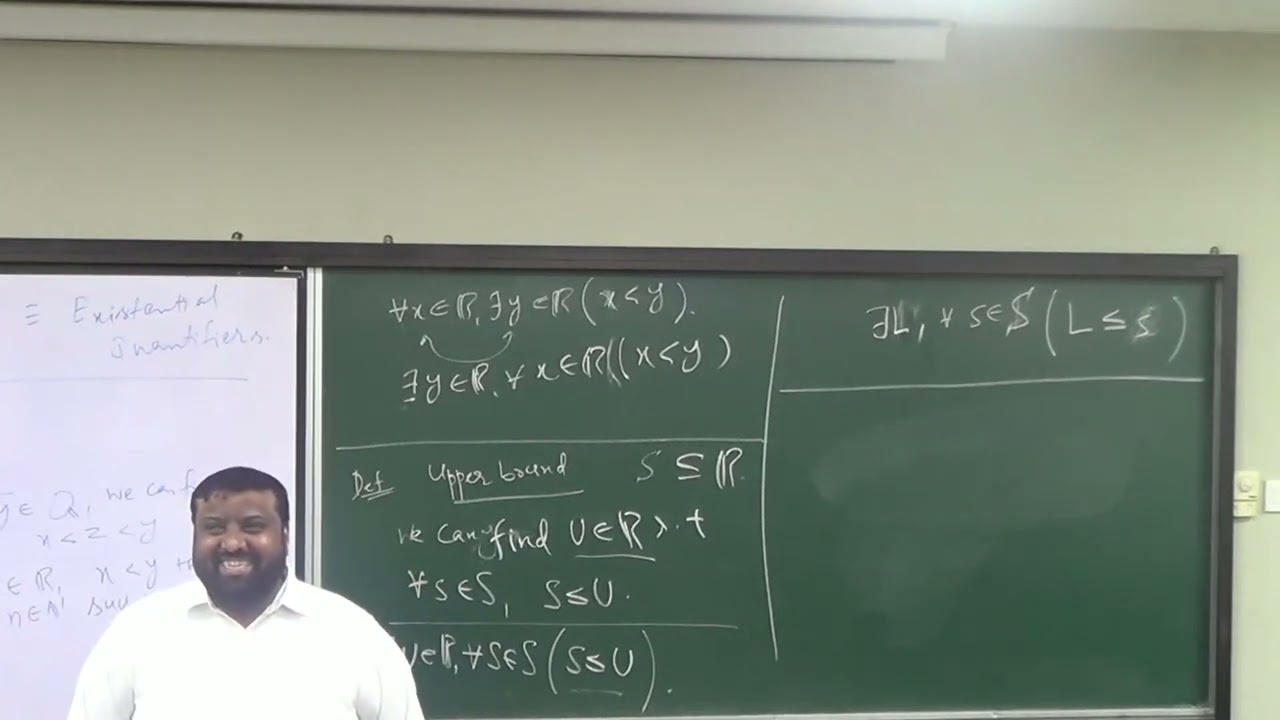 ≡ Existential
Quantifiers.
y ∈ Q, we can
x < z < y
∈ ℝ, x < y
n ∈ ℕ
∀x ∈ ℝ, ∃y ∈ ℝ (x < y).
∃y ∈ ℝ, ∀x ∈ ℝ ((x < y)
Def Upper bound S ⊆ ℝ.
We can find U ∈ ℝ s.t
∀s ∈ S, s ≤ U.
U ∈ ℝ, ∀s ∈ S (s ≤ U).
∃L, ∀ s ∈ S (L ≤ s)